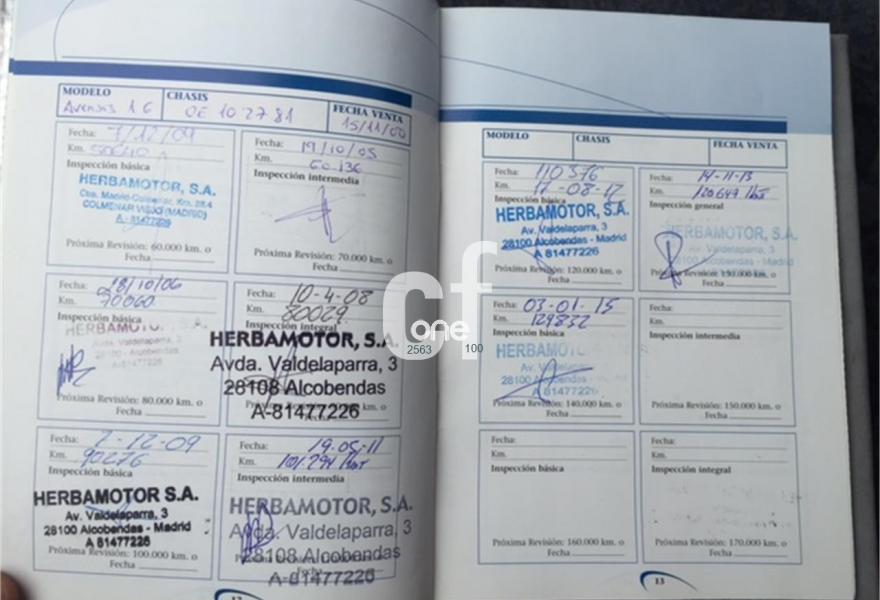 MODELO
CHASIS
FECHA VENTA
Avensis 1.6
OE 102781
15/11/00
Fecha: 7/12/04
Km.
Inspección básica
HERBAMOTOR, S.A.
Ctra. Madrid-Colmenar, Km. 28.4
COLMENAR VIEJO (MADRID)
A-81477226
Próxima Revisión: 60.000 km. o
Fecha
Fecha: 19/10/05
Km. 60.136
Inspección intermedia
Próxima Revisión: 70.000 km. o
Fecha
Fecha: 18/10/06
Km. 70060
HERBAMOTOR, S.A.
Avda. Valdelaparra,
28100 - Alcobendas
A-81477226
Próxima Revisión: 80.000 km. o
Fecha
Fecha: 10-4-08
Km. 80029
Inspección integral
HERBAMOTOR, S.A.
Avda. Valdelaparra, 3
28108 Alcobendas
A-81477226
km. o
Fecha: 2-12-09
Km. 90276
Inspección básica
HERBAMOTOR S.A.
Av. Valdelaparra, 3
28100 Alcobendas - Madrid
A 81477226
Próxima Revisión: 100.000 km. o
Fecha
Fecha: 19.05-11
Km. 101.294 km
Inspección intermedia
HERBAMOTOR, S.A.
Avda. Valdelaparra, 3
28108 Alcobendas
A-81477226
12
MODELO
CHASIS
FECHA VENTA
Fecha: 110376
Km. 17-08-12
Inspección básica
HERBAMOTOR, S.A.
Av. Valdelaparra, 3
28100 Alcobendas - Madrid
A 81477226
Próxima Revisión: 120.000 km. o
Fecha
Fecha: 14-11-13
Km. 120649 km
Inspección general
HERBAMOTOR, S.A.
Av. Valdelaparra, 3
28100 Alcobendas - Madrid
A 81477226
Próxima Revisión: 130.000 km. o
Fecha
Fecha: 03-01-15
Km. 129832
Inspección básica
HERBAMOTOR, S.A.
Av. Valdelaparra,
28100 Alcobendas
A 81477226
Próxima Revisión: 140.000 km. o
Fecha
Fecha:
Km.
Inspección intermedia
Próxima Revisión: 150.000 km. o
Fecha
Fecha:
Km.
Inspección básica
Próxima Revisión: 160.000 km. o
Fecha
Fecha:
Km.
Inspección integral
Próxima Revisión: 170.000 km. o
Fecha
13
cf
one
2563
100